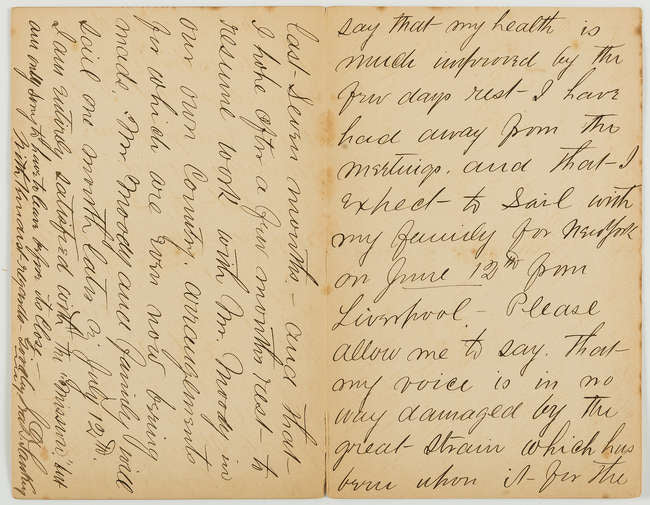 say that my health is
much improved by the
few days rest - I have
had away from the
meetings. and that - I
expect - to sail with
my family for New York
on June 12th from
Liverpool - Please
allow me to say. that -
my voice is in no
way damaged by the
great - strain which has
been upon it - for the
last - Seven months. - and that -
I hope after a few months rest - to
resume work with Mr. Moody in
our own Country. arrangements
for which are even now being
made. Mr Moody and family will
sail one month later i.e. July 12th.
I am entirely satisfied with the "Mission" but
am only sorry to have to leave before its close -
With kindest regards -